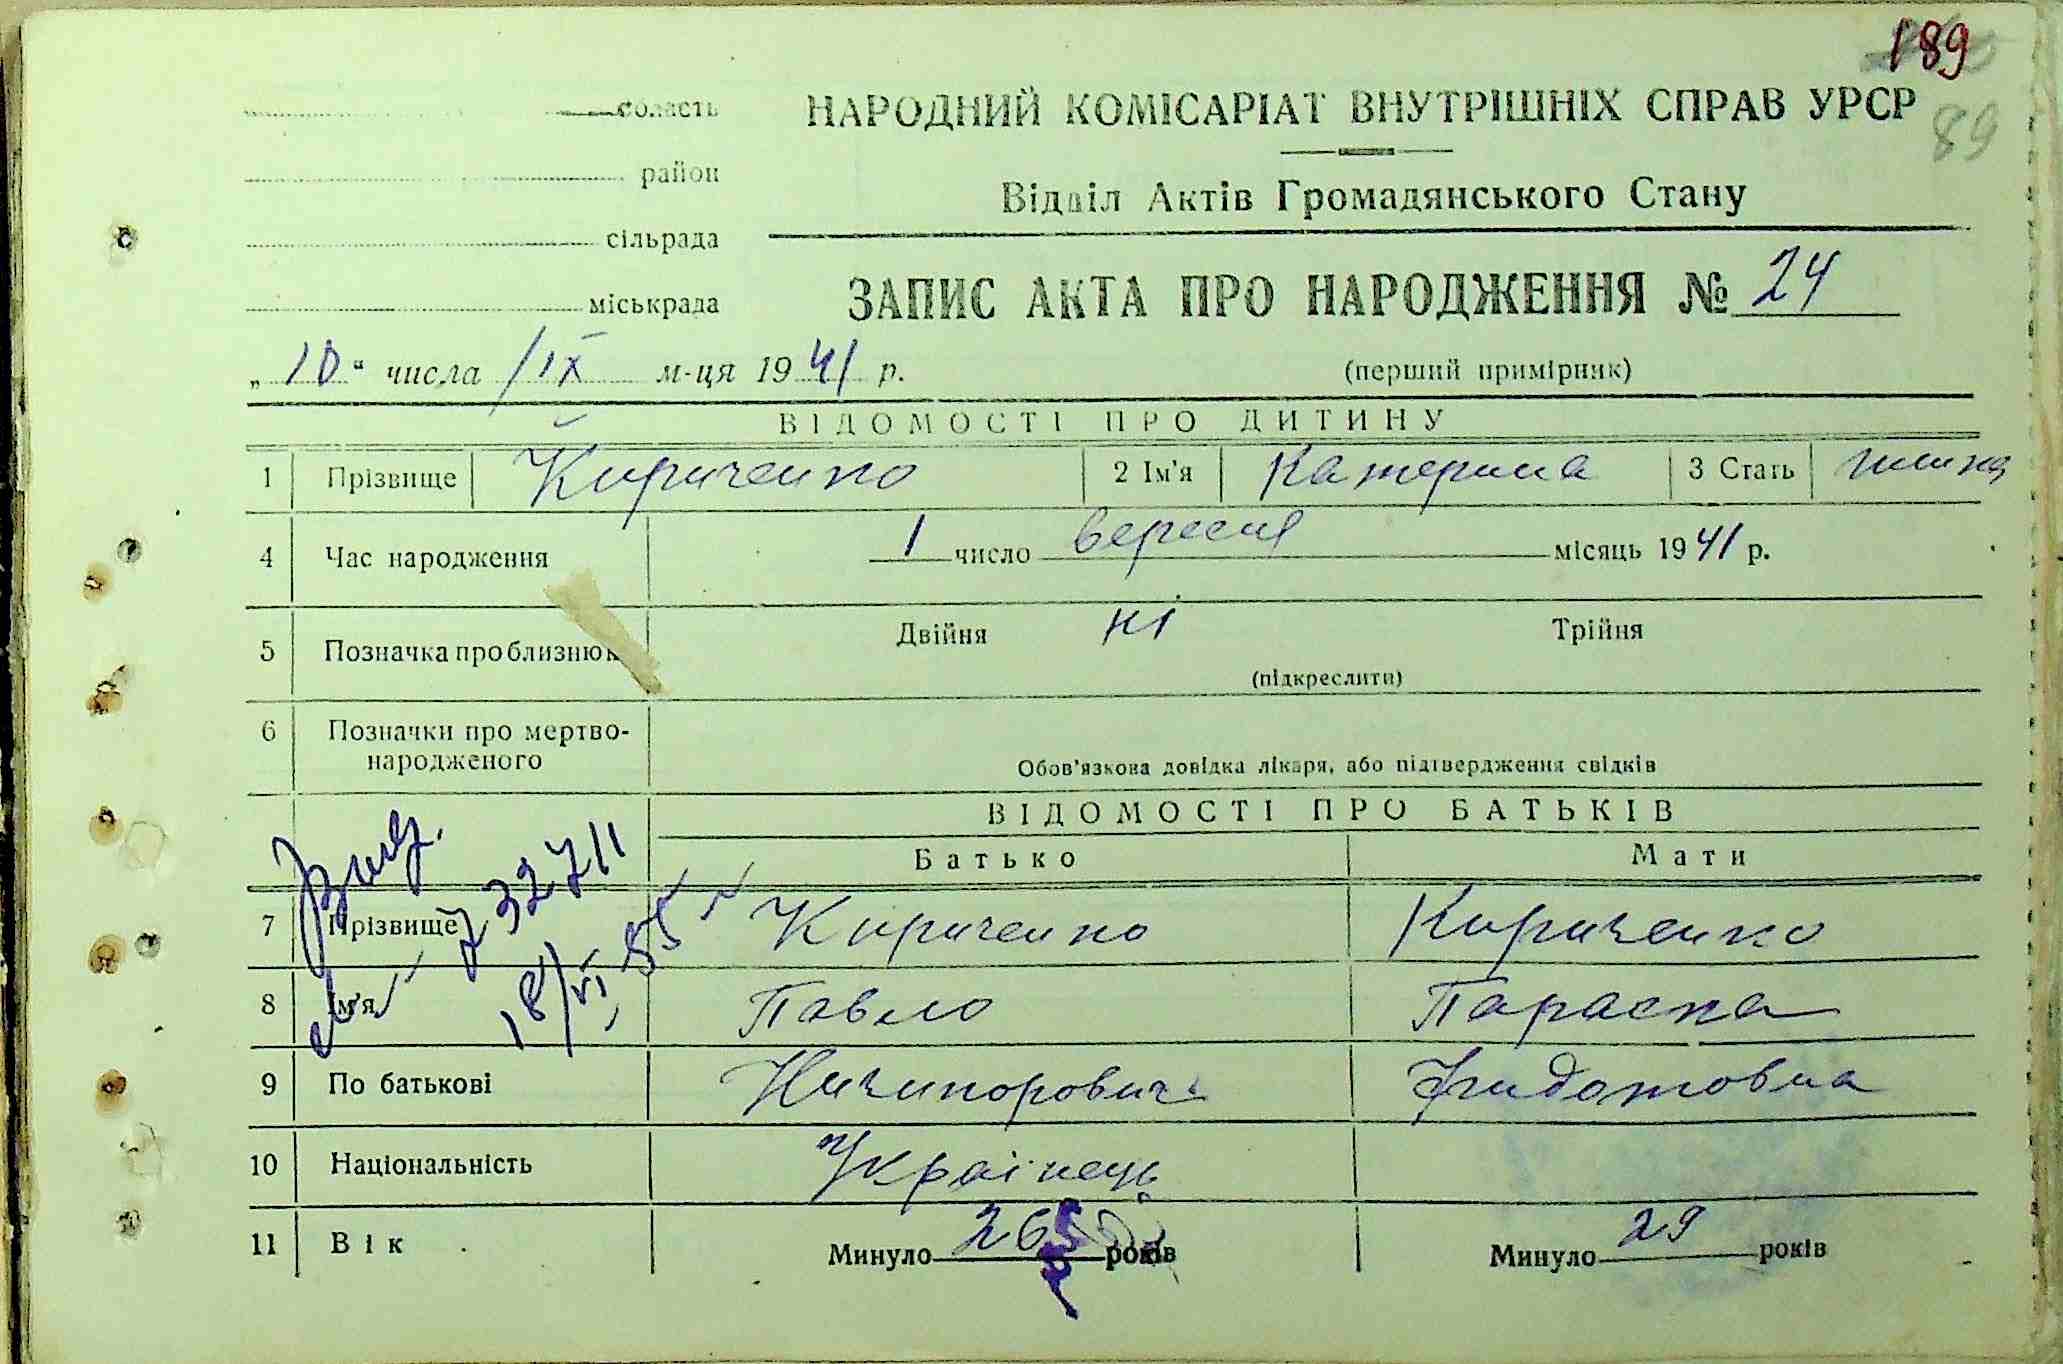 189
89
область
НАРОДНИЙ КОМІСАРІАТ ВНУТРІШНІХ СПРАВ УРСР
район
Відділ Актів Громадянського Стану
сільрада
міськрада
ЗАПИС АКТА ПРО НАРОДЖЕННЯ № 24
„ 10 “ числа IX м-ця 1941 р.
(перший примірник)
ВІДОМОСТІ ПРО ДИТИНУ
1 Прізвище Кириченко 2 Ім'я Катерина 3 Стать
4 Час народження 1 число вересня місяць 1941 р.
5 Позначка про близнюк Двійня ні Трійня
(підкреслити)
6 Позначки про мертво-
народженого
Обов'язкова довідка лікаря, або підтвердження свідків
ВІДОМОСТІ ПРО БАТЬКІВ
Батько Мати
7 Прізвище Кириченко Кириченко
32711
18/VI 55
8 Ім'я Павло Параска
9 По батькові Ничипорович Фидотовна
10 Національність Українець
11 Вік Минуло 26 років Минуло 29 років